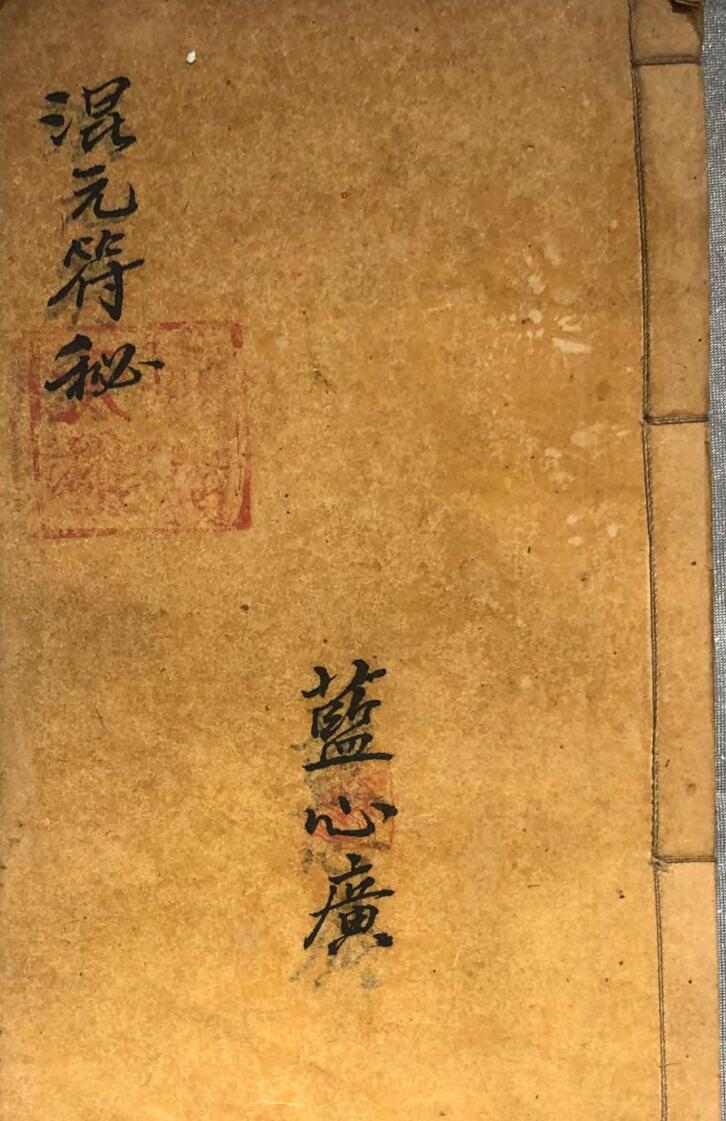 混元符秘
藍心廣